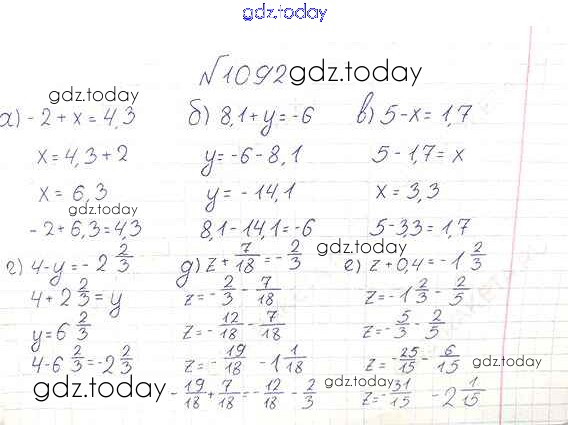 gdz.today
№1092 gdz.today
gdz.today
а) -2 + x = 4,3
x = 4,3 + 2
x = 6,3
gdz.today
-2 + 6,3 = 4,3
б) 8,1 + y = -6
y = -6 - 8,1
y = -14,1
8,1 - 14,1 = -6
в) 5 - x = 1,7
5 - 1,7 = x
x = 3,3
5 - 3,3 = 1,7
г) 4 - y = -2 2/3
4 + 2 2/3 = y
y = 6 2/3
4 - 6 2/3 = -2 2/3
gdz.today
д) z + 7/18 = -2/3
z = -2/3 - 7/18
z = -12/18 - 7/18
z = -19/18 - 1 1/18
-19/18 + 7/18 = -12/18 - 2/3
gdz.today
е) z + 0,4 = -1 2/3
z = -1 2/3 - 2/5
z = -5/3 - 2/5
z = -25/15 - 6/15
gdz.today
z = -31/15 - 2 1/15
gdz.today